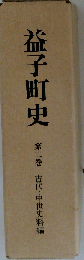 益子町史
第二巻 古代・中世史料編